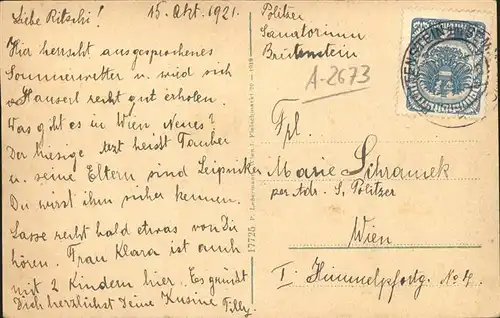 Liebe Ritschi! 15. Okt. 1921.
Hier herrscht ausgesprochenes
Sommerwetter u. wird sich
Hanserl recht gut erholen.
Was gibt es in Wien, Neues?
Der hiesige Arzt heißt Tauber
u. seine Eltern sind Leipniker
Du wirst ihn sicher kennen.
Lasse recht bald etwas von Dir
hören. Frau Klara ist auch
mit 2 Kindern hier. Es grüßt
Dich herzlichst Deine Kusine Tilly.
Politzer
Sanatorium
Breitenstein
A-2673
Frl.
Marie Schramek
per Adr. S. Politzer
Wien
I Himmelpfortg. No
17725 P.
BREITENSTEIN